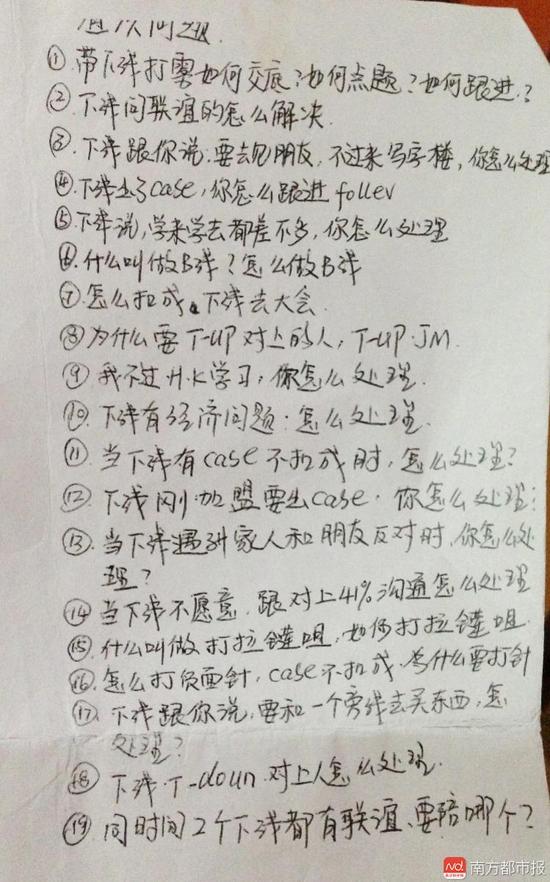 问题
① 带下线打雾如何交底?如何点题?如何跟进?
② 下线问联谊的怎么解决.
③ 下线跟你说.要去见朋友,不过来写字楼,你怎么处理
④ 下线出了case,你怎么跟进 follev
⑤ 下线说,学来学去都差不多,你怎么处理
⑥ 什么叫做B线?怎么做B线
⑦ 怎么扣成下线去大会.
⑧ 为什么要T-UP对上的人,T-UP.JM.
⑨ 我不过H.K学习,你怎么处理.
⑩ 下线有经济问题.怎么处理.
⑪ 当下线有case不扣成时,怎么处理?
⑫ 下线刚加盟要出case.你怎么处理?
⑬ 当下线遇到家人和朋友反对时,你怎么处
理?
⑭ 当下线不愿意.跟对上41%沟通怎么处理
⑮ 什么叫做打拉锤咀,如何打拉锤咀.
⑯ 怎么打负面针,case不扣成.为什么要打针
⑰ 下线跟你说,要和一个旁线去买东西,怎
处理?
⑱ 下线.T-doun.对上人怎么处理.
⑲ 同时间2个下线都有联谊、要陪哪个?
南方都市报